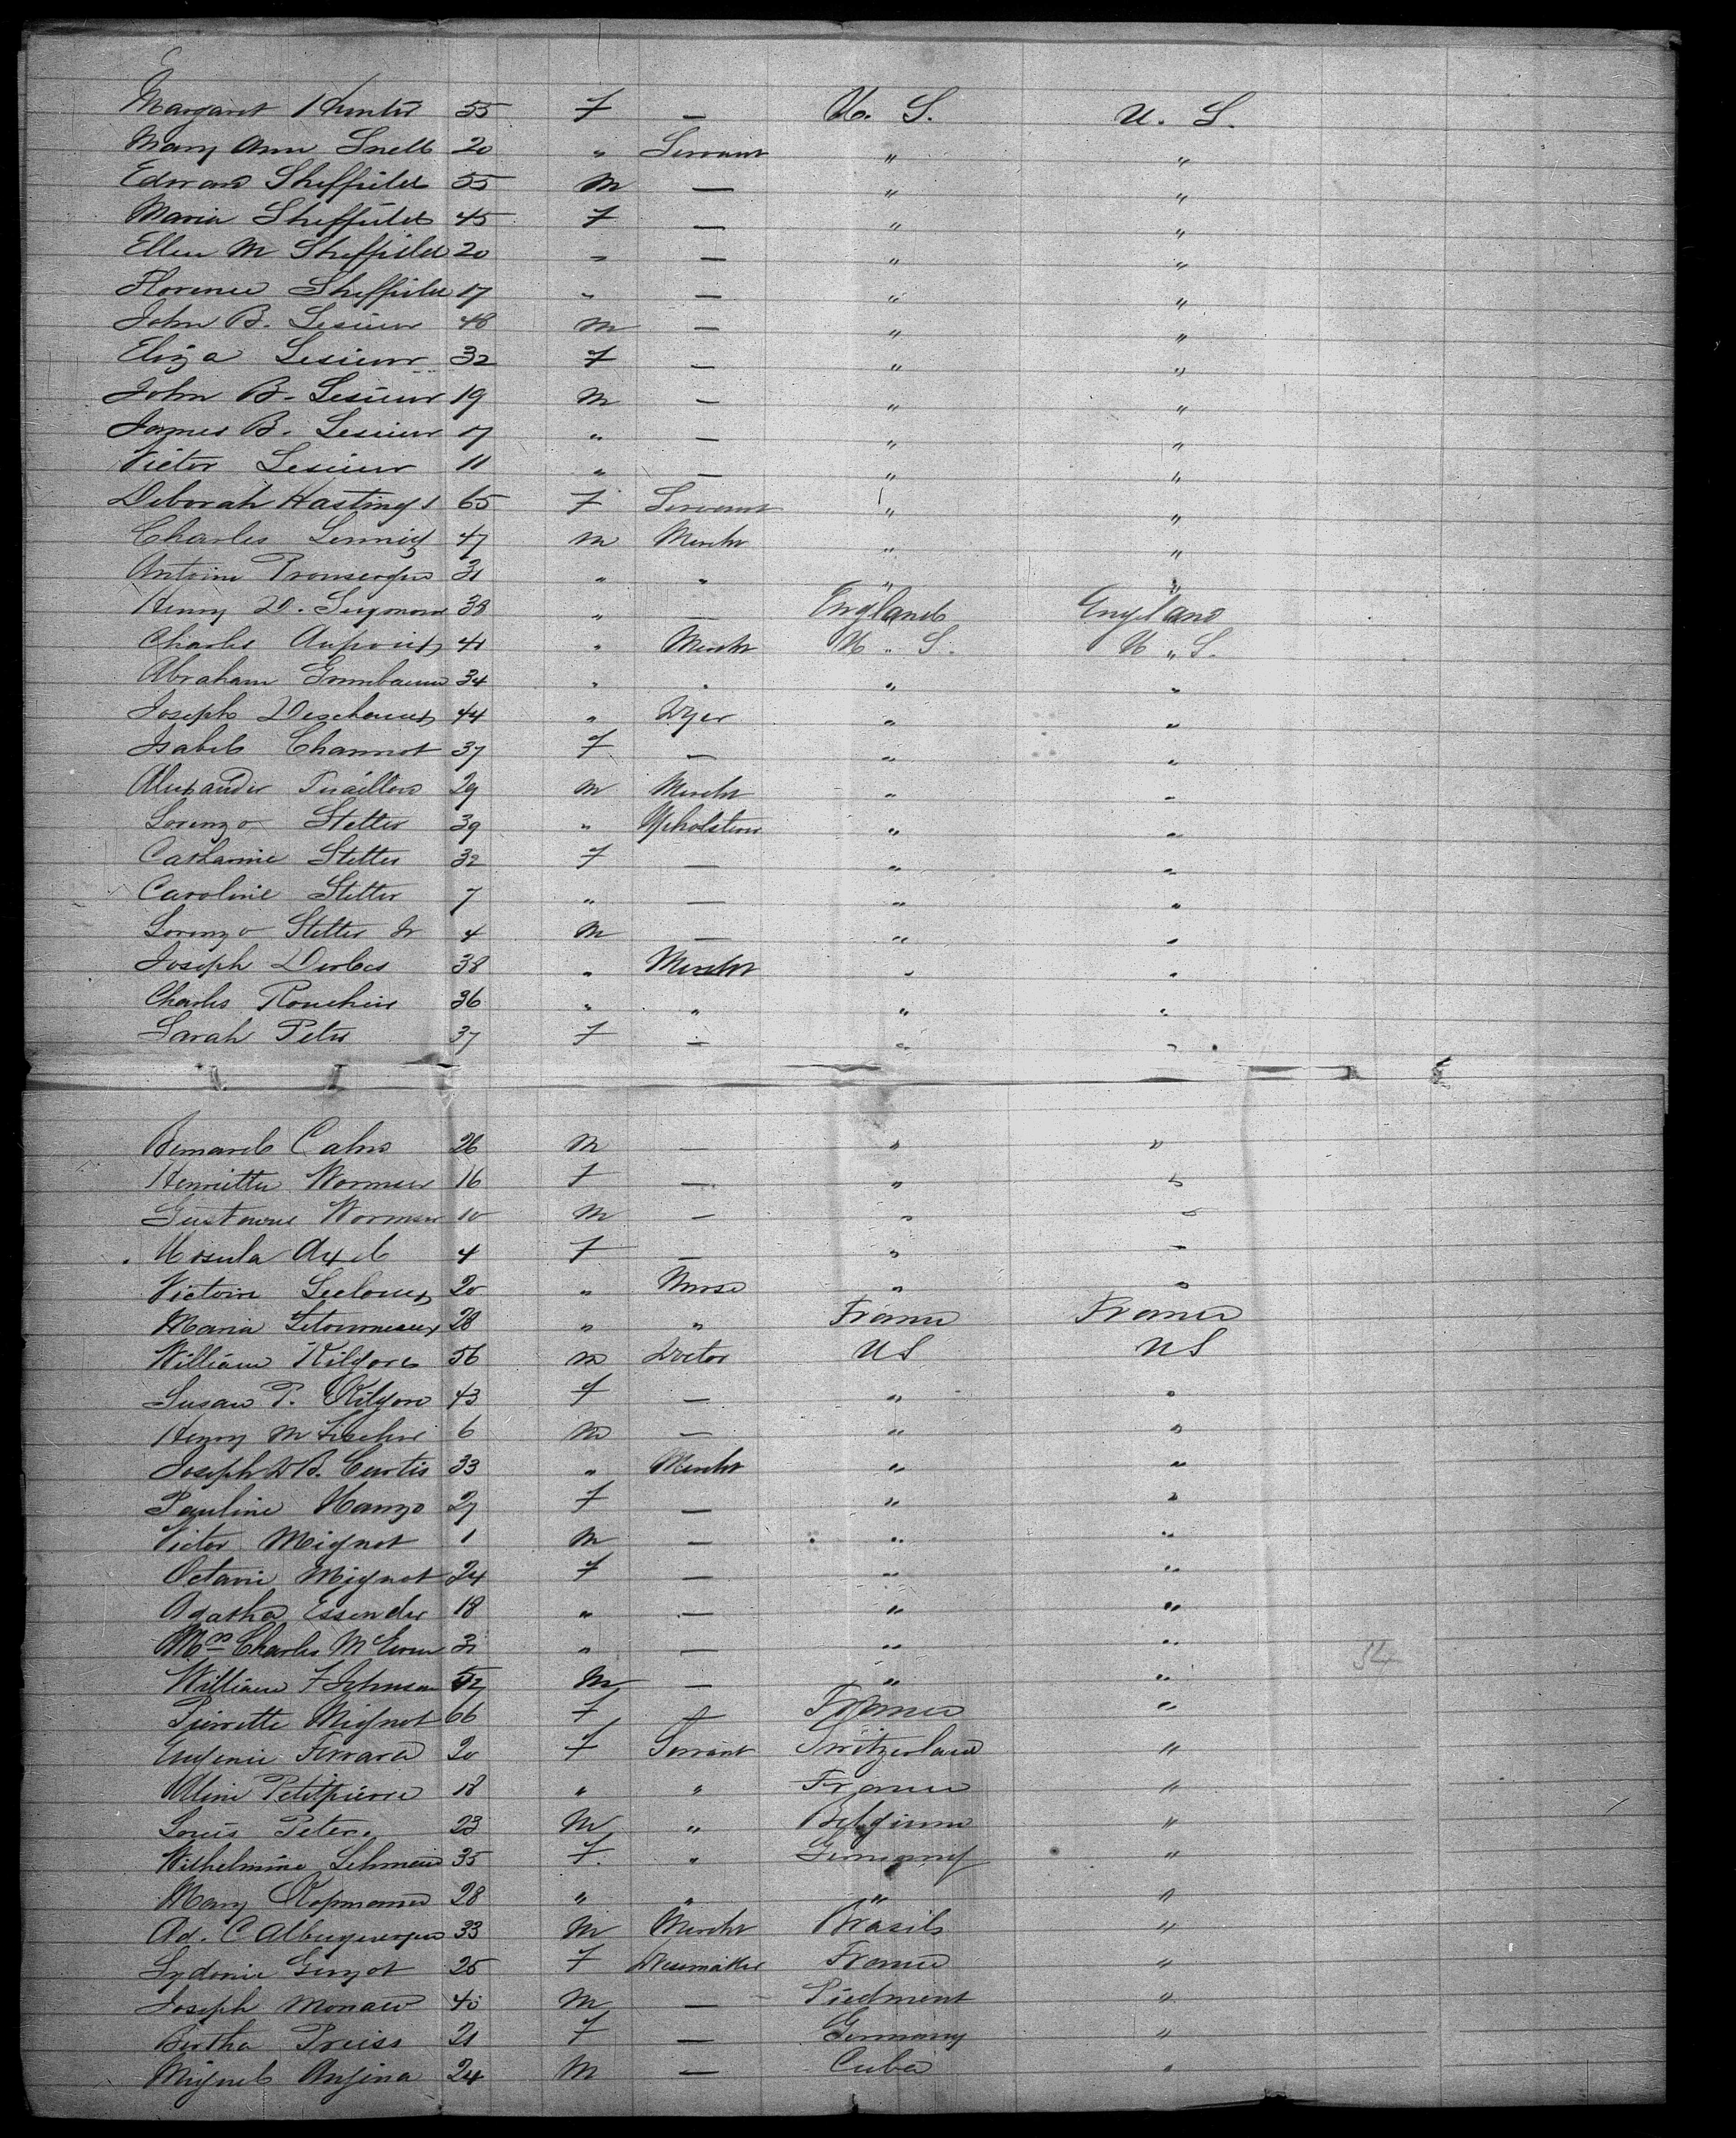 Margaret Hunter 55 F — U. S. U. S.
Mary Ann Snell 20 " Servant " "
Edward Sheffield 55 M — " "
Maria Sheffield 45 F — " "
Ellen M Sheffield 20 " — " "
Florence Sheffield 17 " — " "
John B. Lesieur 48 M — " "
Eliza Lesieur 32 F — " "
John B. Lesieur 19 M — " "
James B. Lesieur 17 " — " "
Victor Lesieur 11 " — " "
Deborah Hastings 65 F Servant " "
Charles Lennig 47 M Mercht " "
Antoine 31 " " " "
Henry D. 38 " — England England
Charles 41 " Mercht U. S. U. S.
Abraham Grunbaum 34 " " " "
Joseph Deschaux 44 " Dyer " "
Isabel Channot 37 F — " "
Alexander 29 M Mercht " "
Lorenzo Stetter 39 " Upholsterer " "
Catharine Stetter 32 F — " "
Caroline Stetter 7 " — " "
Lorenzo Stetter Jr 4 M — " "
Joseph Derbes 38 " Mercht " "
Charles 36 " " " "
Sarah Peter 37 F — " "
Bernard Cahn 26 M — " "
Henrietta Wormser 16 F — " "
Gustave Wormser 10 M — " "
Ursula Axel 4 F — " "
Victoire Lecloux 20 " Nurse " "
Maria Letourneaux 28 " " France France
William Kilgore 56 M Doctor US US
Susan P. Kilgore 43 F — " "
Henry M Fischer 6 M — " "
Joseph D B. Curtis 33 " Mercht " "
Pauline 27 F — " "
Victor Mignot 1 M — " "
Octavie Mignot 24 F — " "
Agatha Essender 18 " — " "
Mrs Charles McEwen 31 " — " "
William F Johnson M — " "
Pierrette Mignot 66 F — France "
Eugenie Ferrard 20 F Servant Switzerland "
Aline Petitpierre 18 " " France "
Louis Peter. 23 M " Belgium "
Wilhelmina 35 F. " Germany "
Mary Kopmann 28 " " " "
Ad. C Albuquerque 33 M Mercht Brasil "
Sydonie 25 F Dressmaker France "
Joseph 40 M — Piedmont "
Bertha Preiss 21 F — Germany "
Miguel Angina 24 M — Cuba "